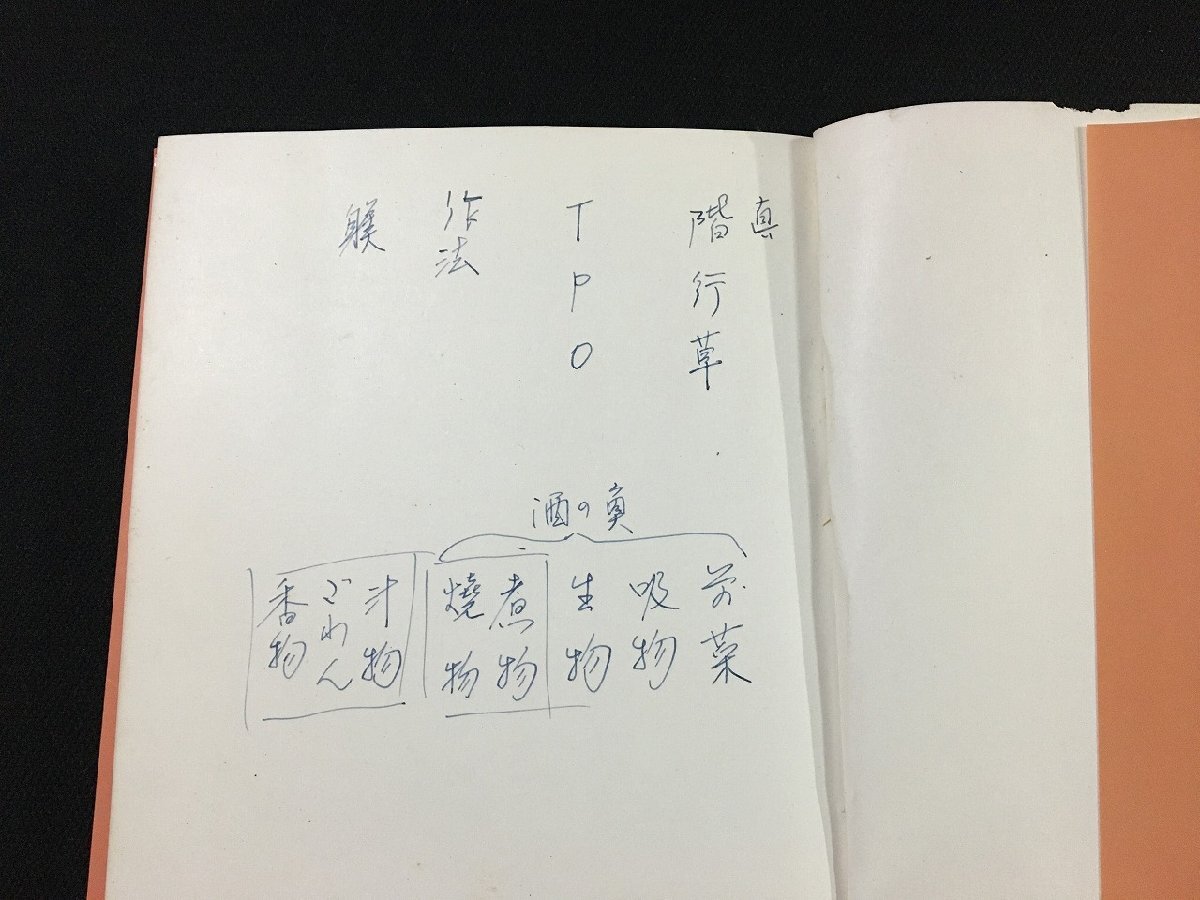 真
階行草
TPO
作法
躾
酒の魚
前菜
吸物
生物
煮物
燒物
汁物
ごはん
香物